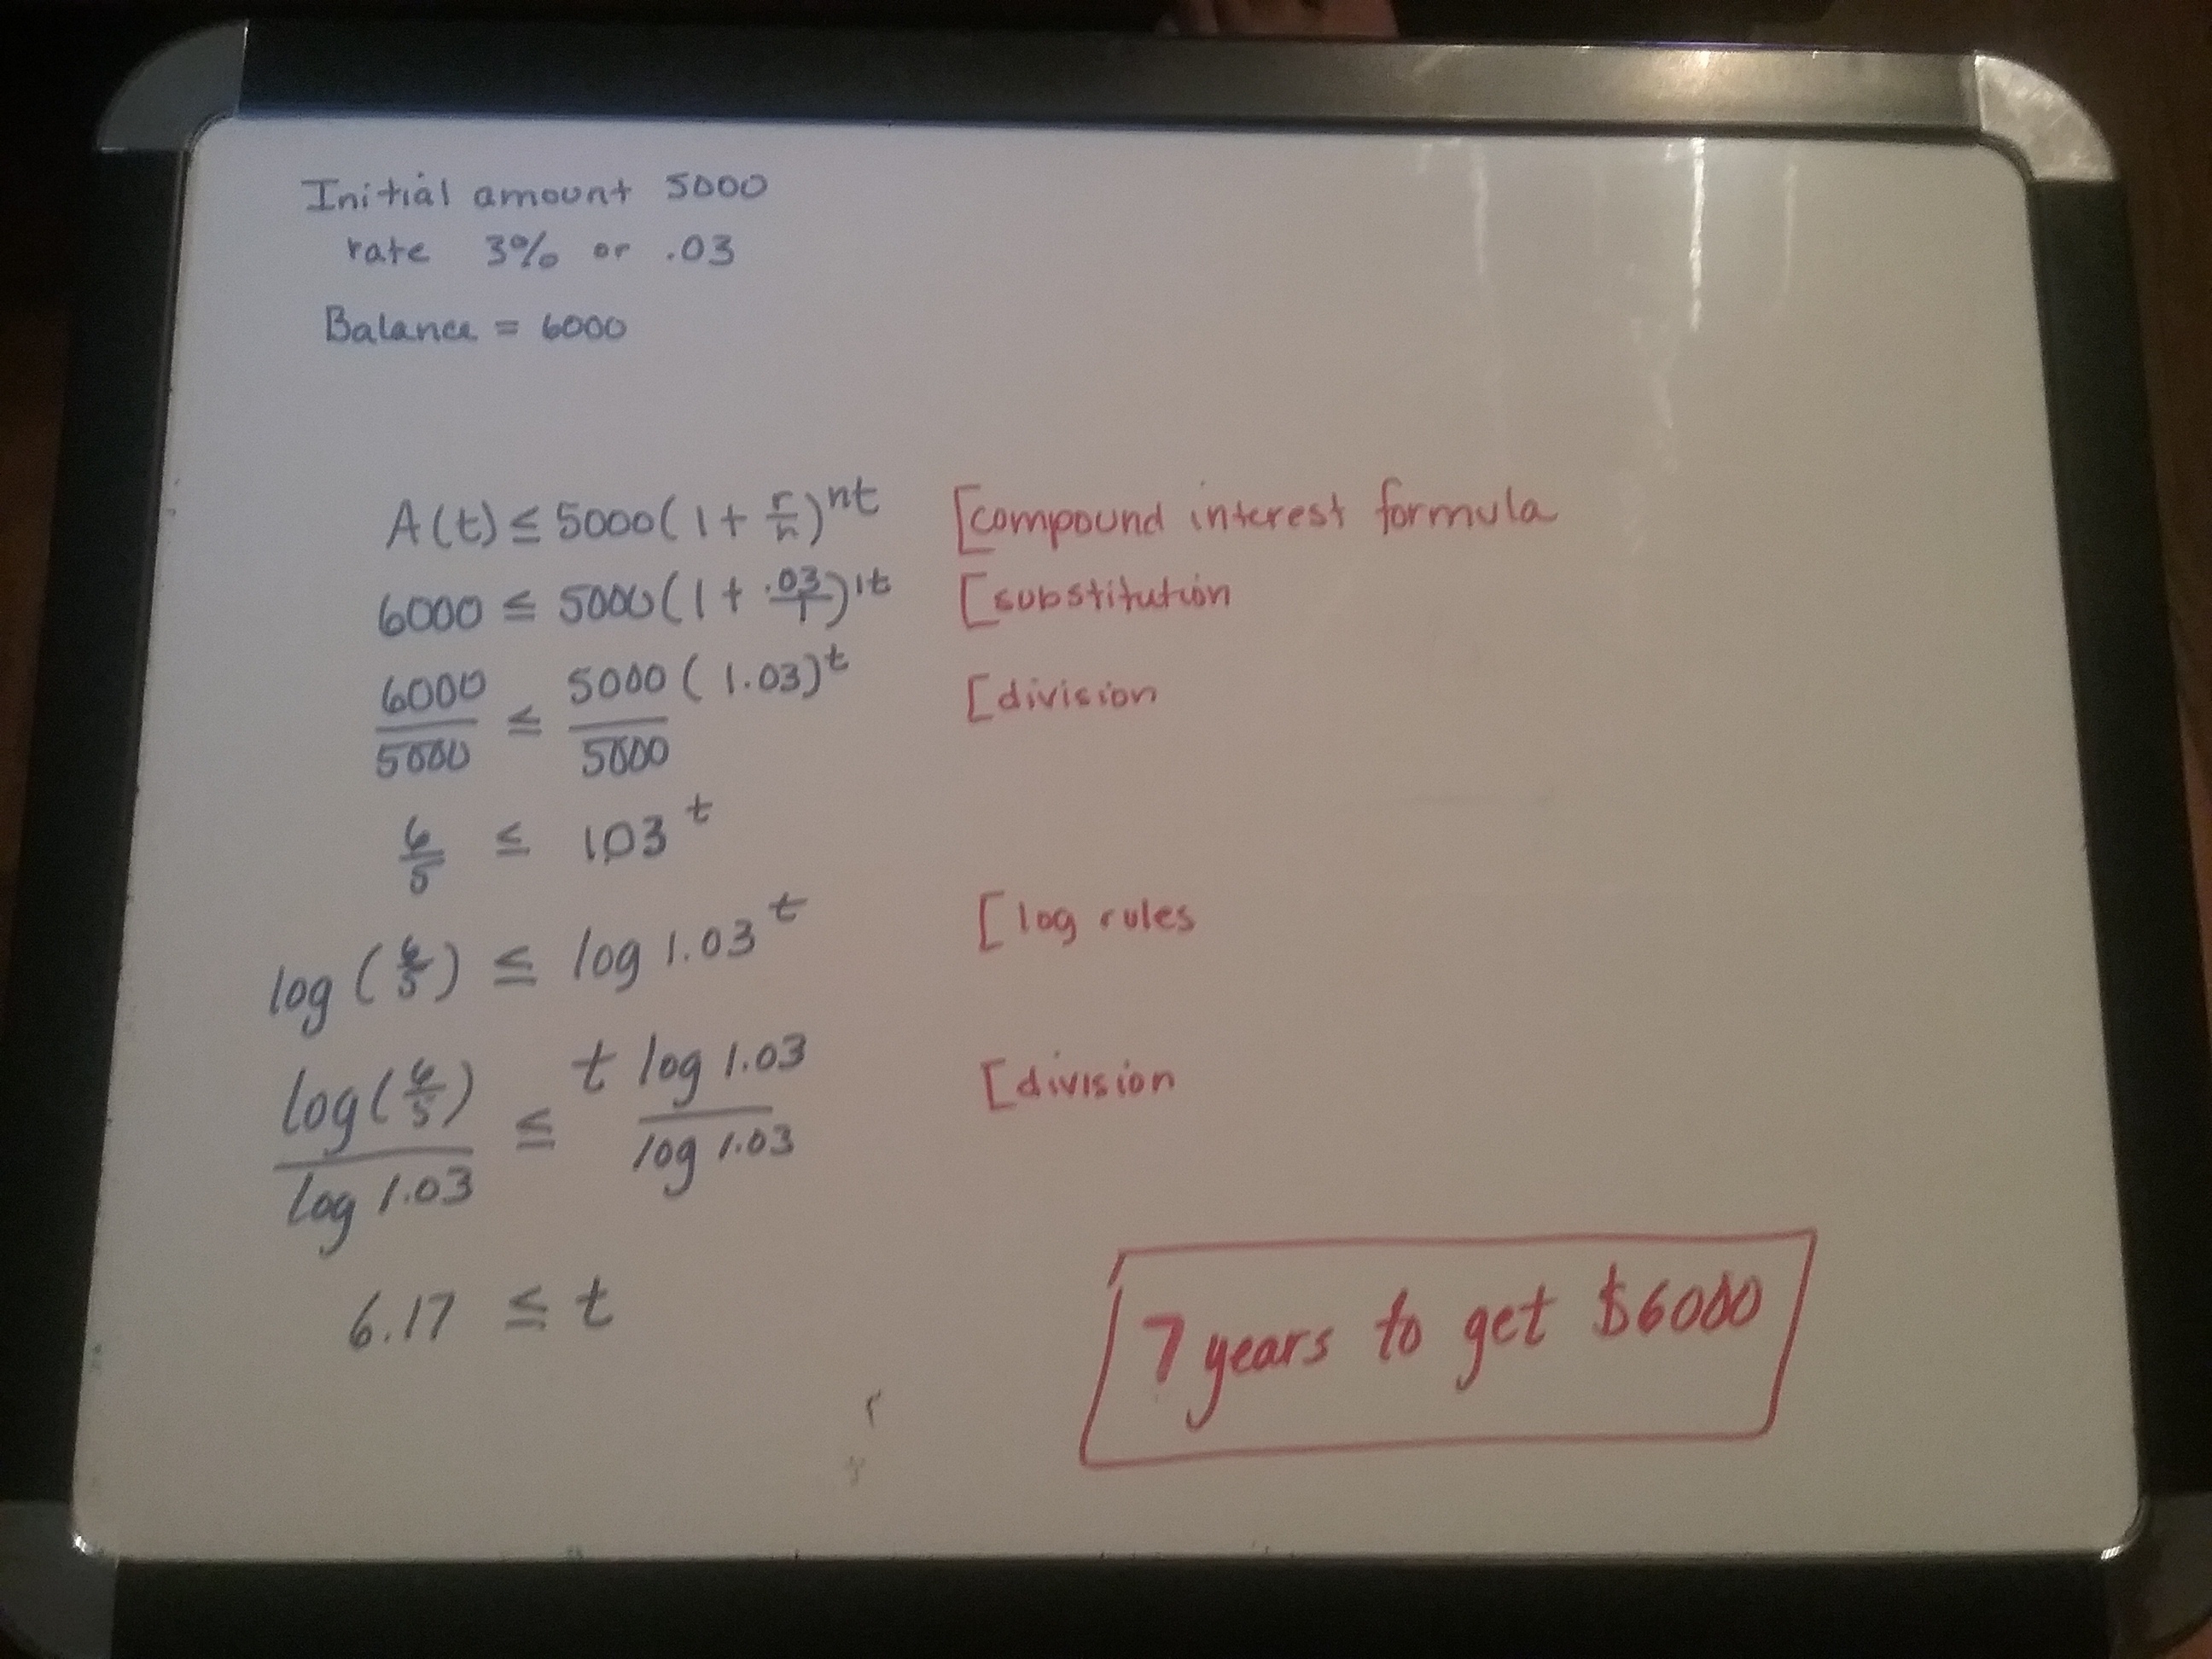 Initial amount 5000
rate 3% or .03
Balance = 6000
A(t) ≤ 5000(1 + r/n)^nt [compound interest formula
6000 ≤ 5000(1 + .03/1)^1t [substitution
6000/5000 ≤ 5000(1.03)^t/5000 [division
6/5 ≤ 1.03^t
log(6/5) ≤ log 1.03^t [log rules
log(6/5)/log 1.03 ≤ t log 1.03/log 1.03 [division
6.17 ≤ t
7 years to get $6000